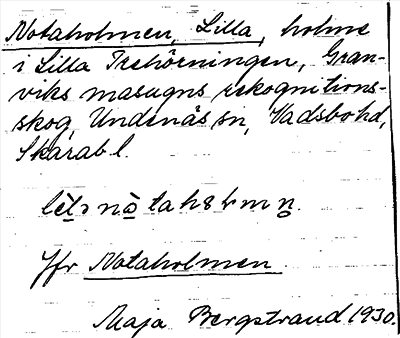 Notaholmen, Lilla, holme
i Lilla Trehörningen, Gran-
viks masugns rekognitions-
skog, Undenäs sn, Vadsbo hd,
Skarab l.
Jfr Notaholmen.
Maja Bergstrand 1930.